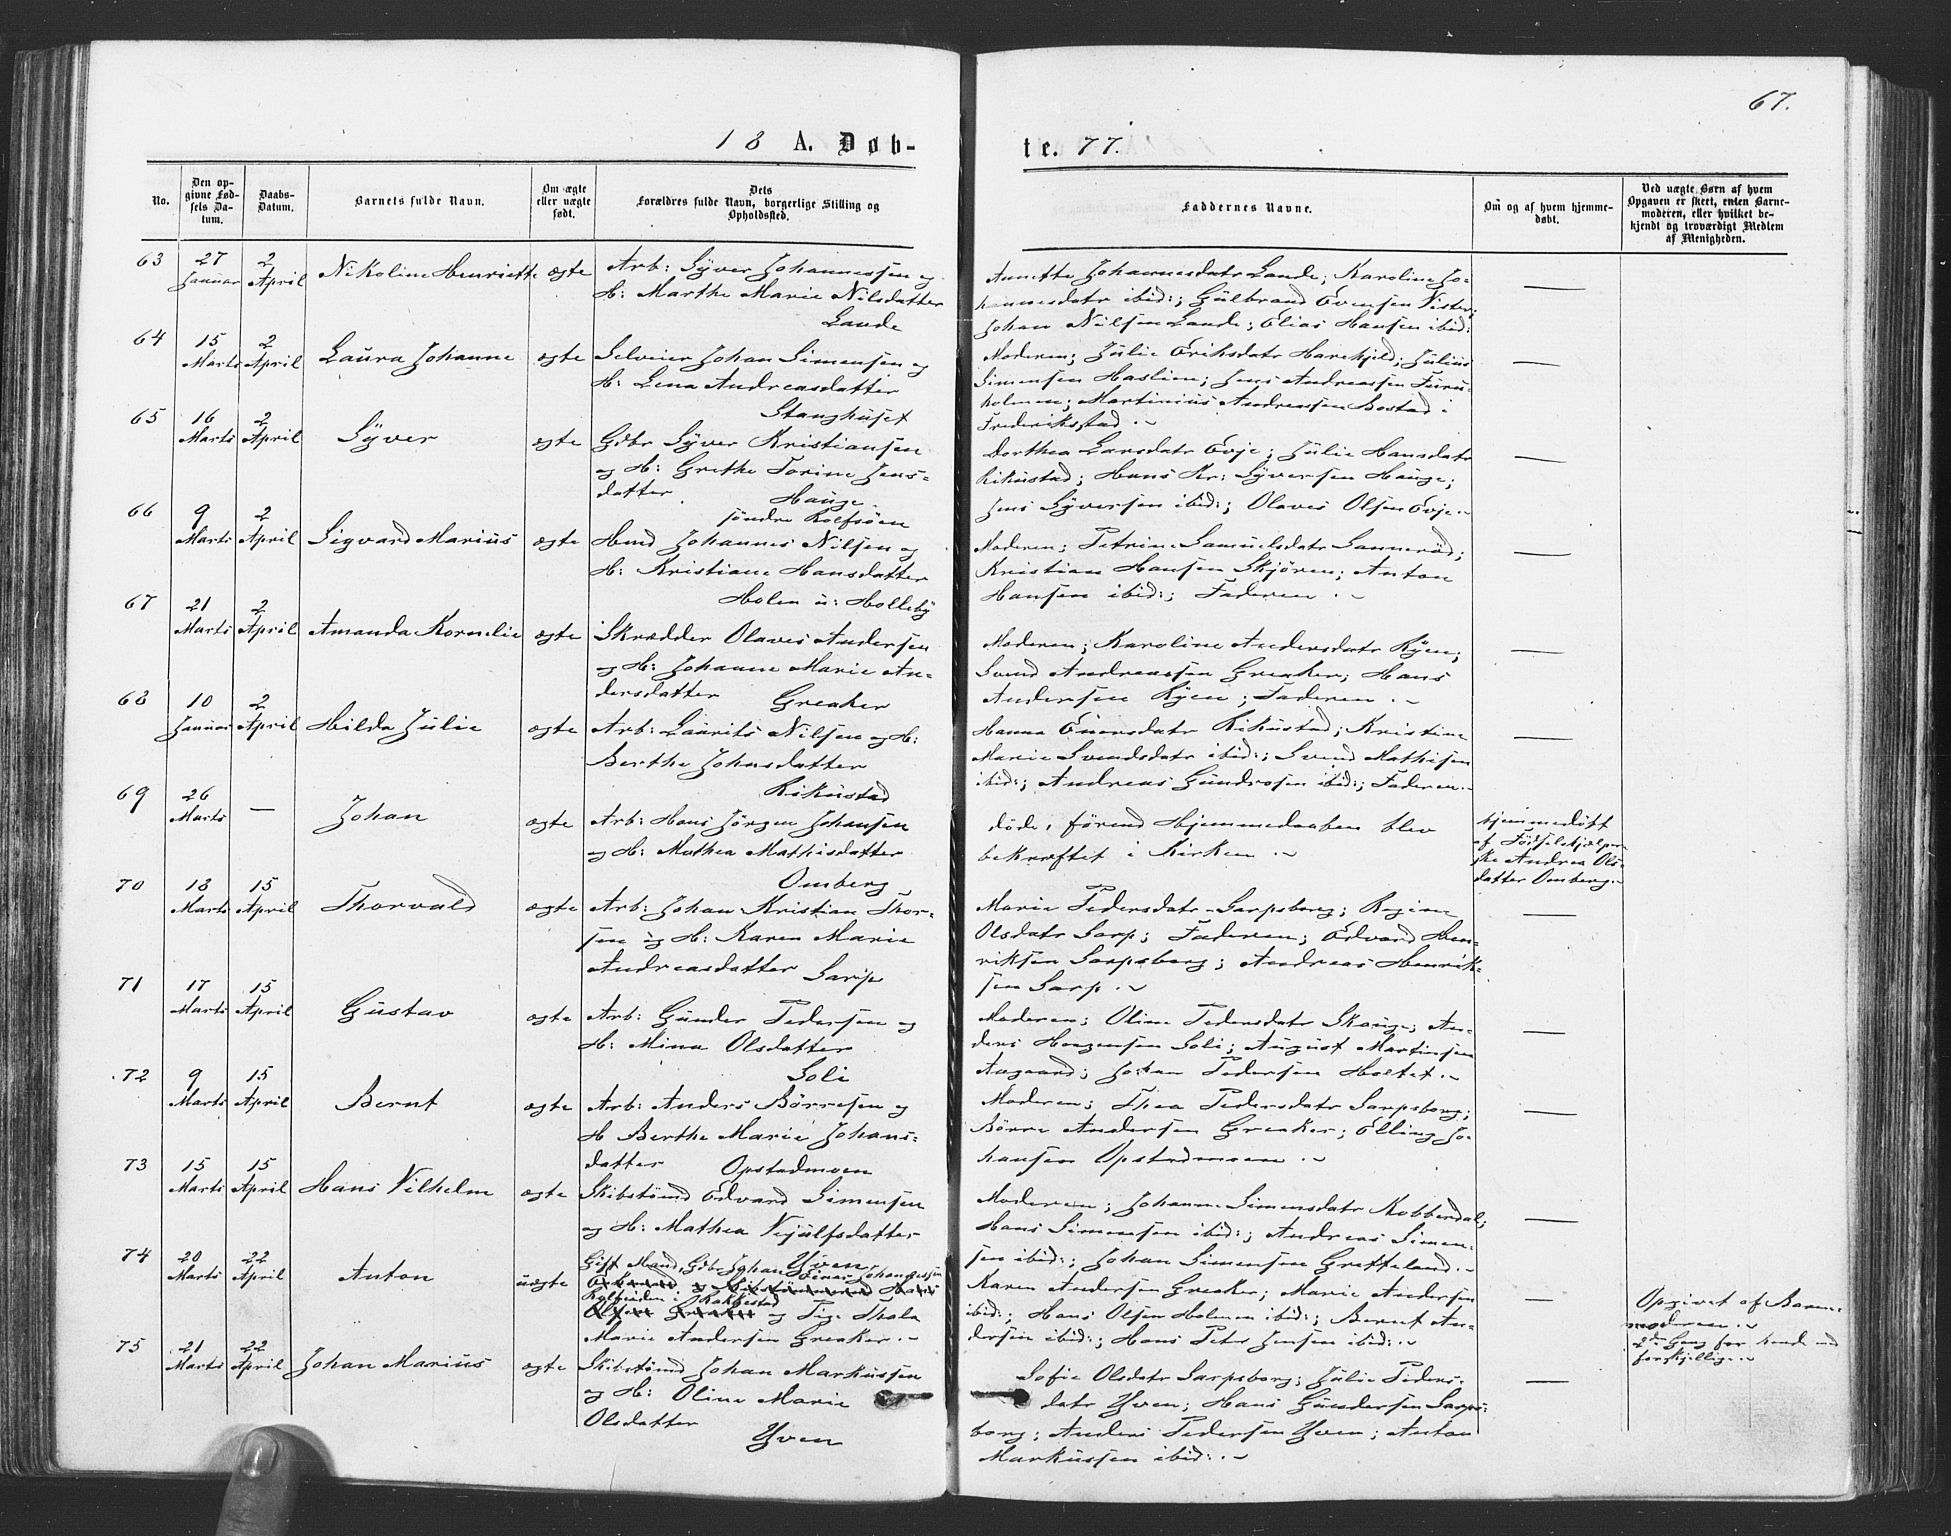 67.
18 A. Døb-
te. 77.
No.
Den op-
givne Fød-
sels Da-
tum.
Daabs-
Datum.
Barnets fulde Navn.
Om ægte
eller uægte
født.
Dets
Forældres fulde Navn, borgerlige Stilling og
Opholdssted.
Faddernes Navne.
Om og af hvem hjemme-
døbt.
Ved uægte Børn af hvem
Opgaven er skeet, enten Barne-
moderen, eller hvilket be-
kjendt og troværdigt Medlem
af Menigheden.
63 27 2
Januar April Nikoline Henriette ægte Arb: Syver Johannessen og
H: Marthe Marie Nilsdatter
Lande
Annette Johannesdatr Lande; Karoline Jo-
hannesdatr ibid:; Gulbrand Evensen Vister;
Johan Nilsen Lande; Elias Hansen ibid:
—
64 15 2
Marts April Laura Johanne ægte Selveier Johan Simensen og
H: Lena Andreasdatter
Stanghuset
Moderen; Julie Eriksdatr Harekjeld; Julius
Simensen Haslien; Jens Andreassen Furu-
holmen; Martinius Andreassen Bostad i
Frederiksstad.
—
65 16 2
Marts April Syver ægte Gdbr Syver Kristiansen
og H: Grethe Torine Jens-
datter Hauge
søndre Rolfsøen
Dorthea Larsdatr Evje; Julie Hansdatr
Kikustad; Hans Kr: Syversen Hauge;
Jens Syversen ibid:; Olaves Olsen Evje.
—
66 9 2
Marts April Sigvard Marius ægte Hmd Johannes Nilsen og
H: Kristiane Hansdatter
Holen u: Holleby
Moderen; Petrine Samuelsdatr Sannerød;
Kristian Hansen Skjøren; Anton
Hansen ibid:; Faderen.
—
67 21 2
Marts April Amanda Kornelie ægte Skrædder Olaves Andersen
og H: Johanne Marie An-
dersdatter Greaker
Moderen; Karoline Andersdatr Ryen;
Svend Andreassen Greaker; Hans
Andersen Ryen; Faderen.
—
68 10 2
Januar April Hilda Julie ægte Arb: Laurits Nilsen og H:
Berthe Johnsdatter
Kikustad
Hanna Einersdatr Kikustad; Kristine
Marie Svendsdatr ibid:; Svend Mathisen
ibid:; Andreas Gundrosen ibid:; Faderen.
—
69 26
Marts — Johan ægte Arb: Hans Jørgen Johansen
og H: Mathea Mathisdatter
Omberg
døde, førend Hjemmedaaben blev
bekræftet i Kirken.
hjemmedøbt
af Fødselshjælper-
ske Andrea Ols-
datter Omberg.
70 18 15
Marts April Thorvald ægte Arb: Johan Kristian Thor-
sen og H: Karen Marie
Andreasdatter Sarp
Marie Pedersdatr Sarpsborg; Regine
Olsdatr Sarp; Faderen; Edvard Hen-
riksen Sarpsborg; Andreas Henrik-
sen Sarp.
—
71 17 15
Marts April Gustav ægte Arb: Gunder Pedersen og
H: Mina Olsdatter
Soli
Moderen; Oline Pedersdatr Skauge; An-
ders Haagensen Soli; August Martinsen
Aagaard; Johan Pedersen Holtet.
—
72 9 15
Marts April Bernt ægte Arb: Anders Børresen og
H Berthe Marie Johans-
datter Opstadmoen
Moderen; Thea Pedersdatr Sarpsborg;
Børre Andersen Greaker; Elling Jo-
hansen Opstadmoen.
—
73 15 15
Marts April Hans Vilhelm ægte Skibstømd Edvard Simensen
og H: Mathea Vejulfsdatter
Yven
Moderen; Johanne Simensdatr Kobberdal;
Hans Simensen ibid:; Andreas Simen-
sen ibid:; Johan Simensen Gretteland.
—
74 20 22
Marts April Anton uægte Gift Mand, Gdbr Johan Einar Johannessen
i Rakkestad
og Pige Thala
Marie Andersen Greaker.
Karen Andersen Greaker; Marie Andersen
ibid:; Hans Olsen Holmen ibid:; Bernt An-
dersen ibid:; Hans Peter Jensen ibid:.
—
Opgivet af Barne-
moderen.
2den Gang for hende med
forskjellige.
75 21 22
Marts April Johan Marius ægte Skibstømd Johan Markussen
og H: Oline Marie
Olsdatter
Yven
Sofie Olsdatr Sarpsborg; Julie Peders-
datr Yven; Hans Gundersen Sarps-
borg; Anders Pedersen Yven; Anton
Markussen ibid:.
—